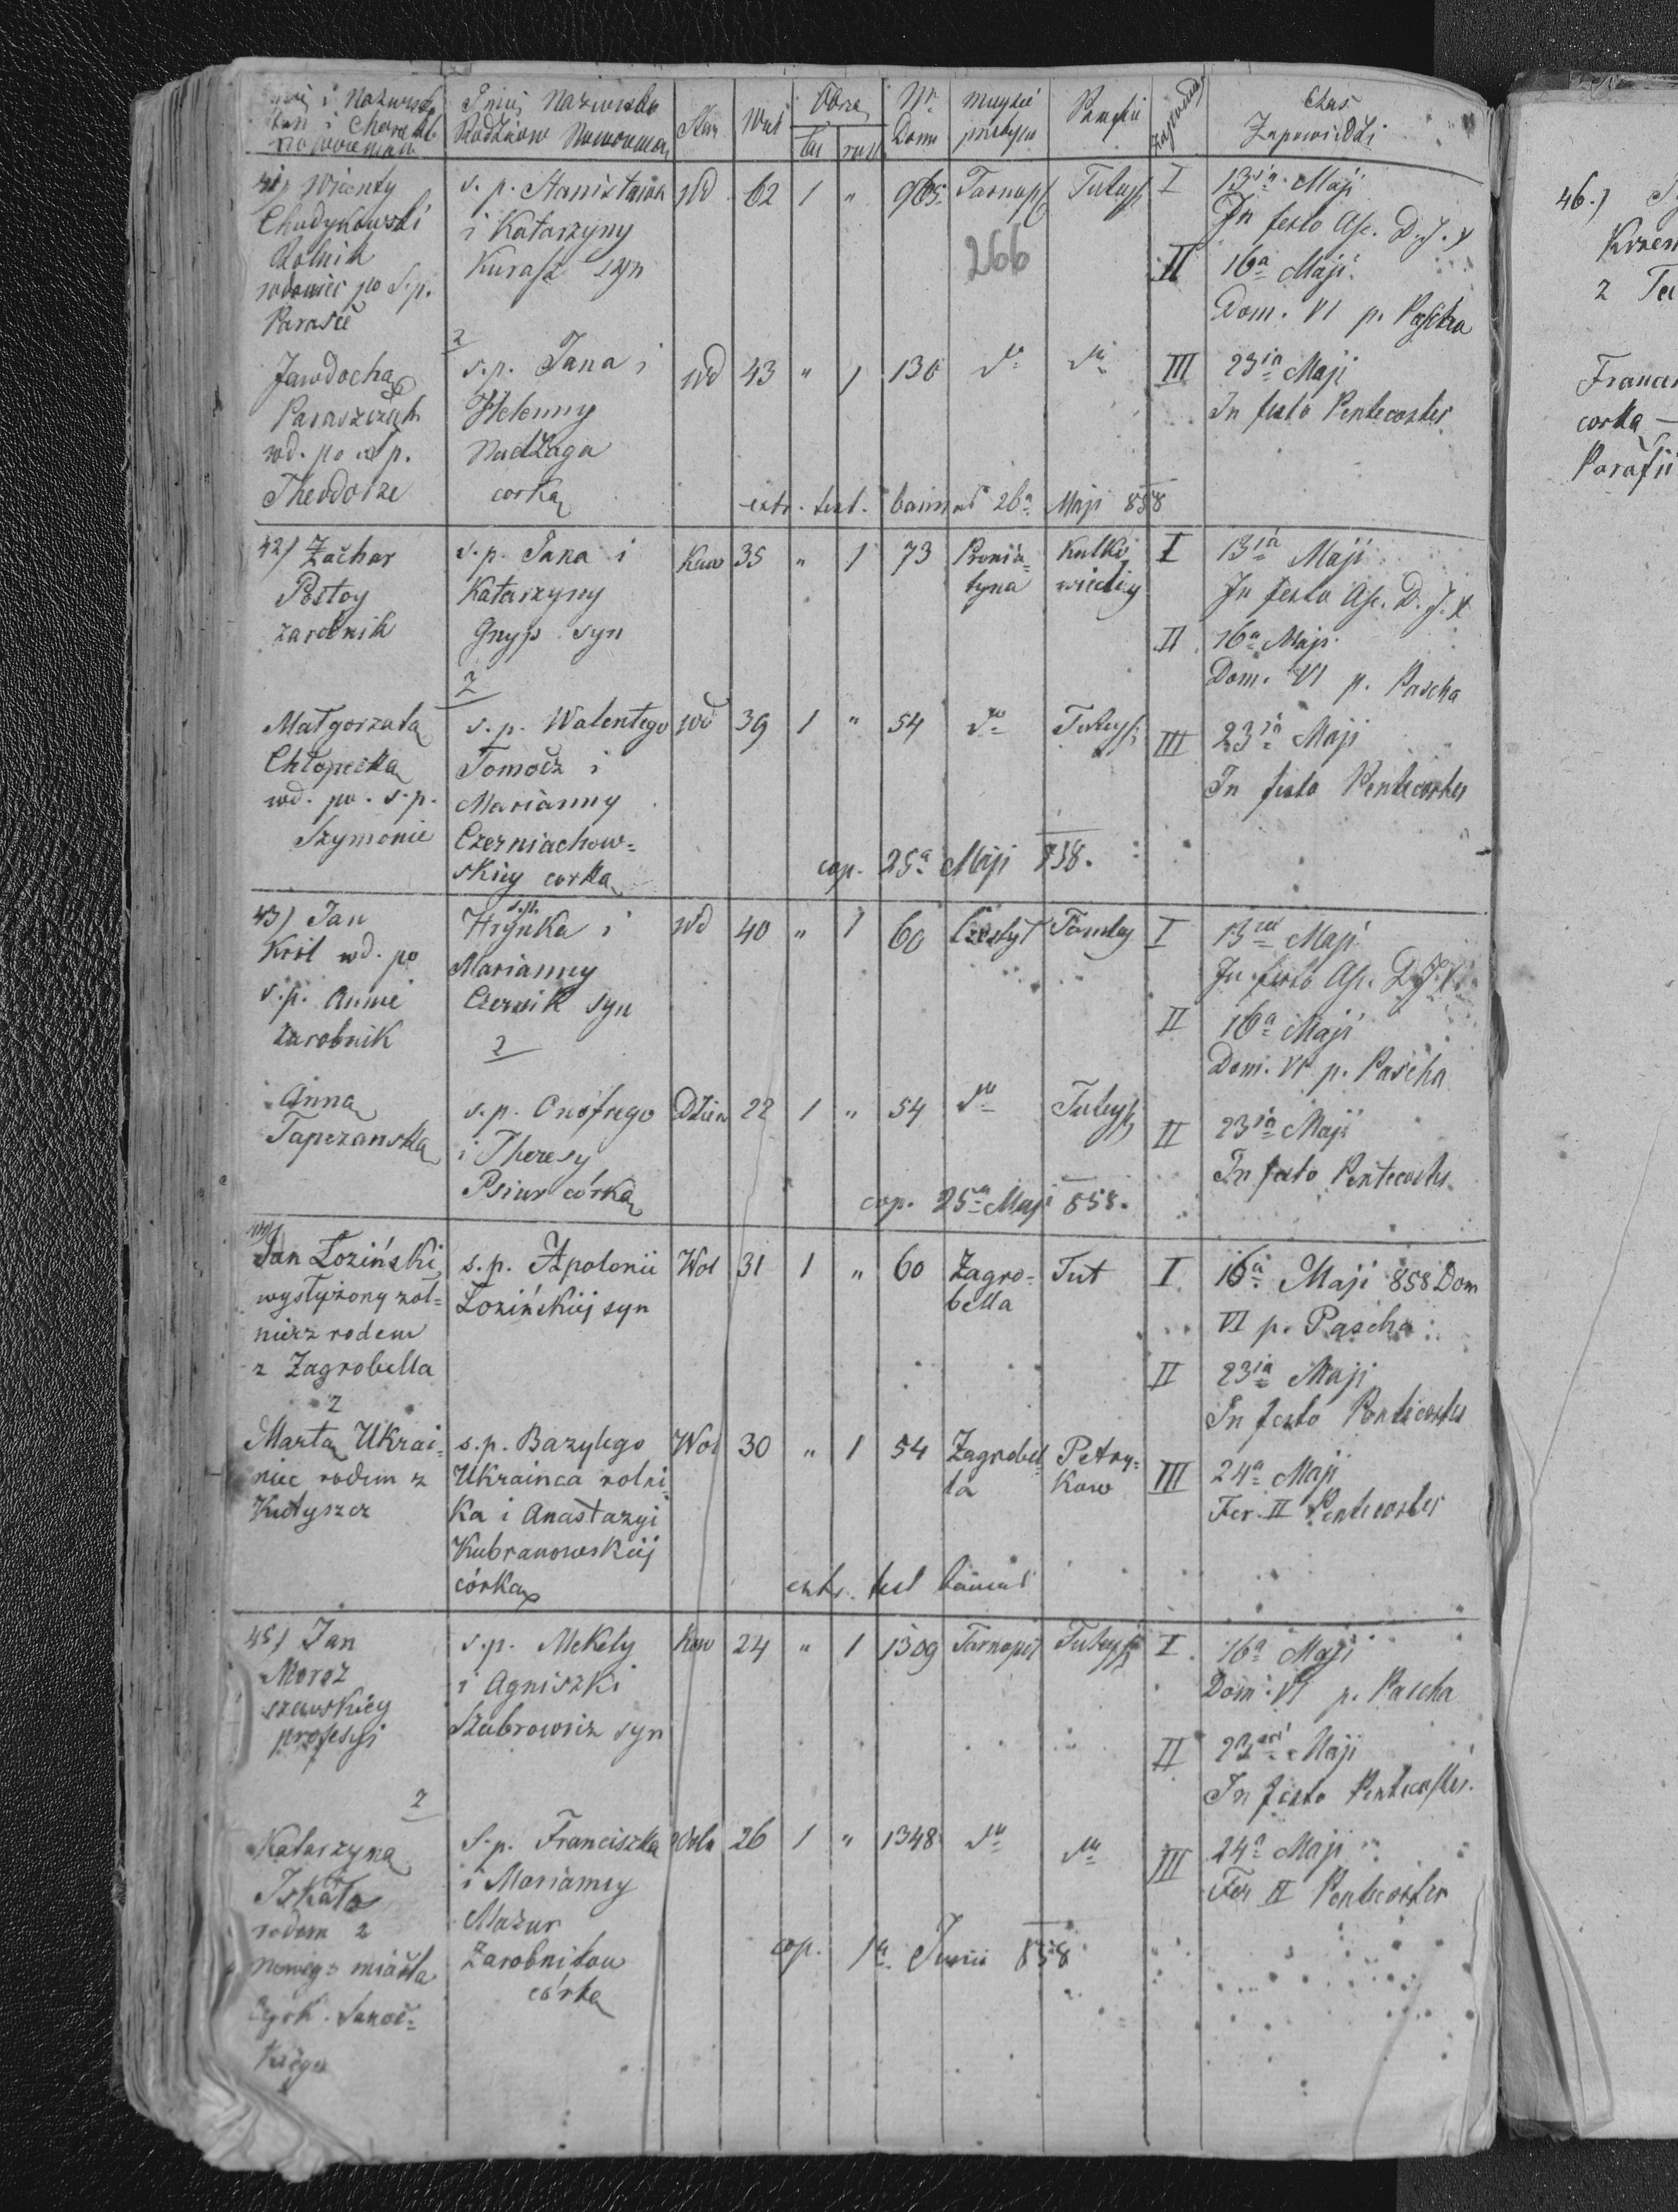 Imię i Nazwisko
Stan i Charakter
Nowożeńców
Imię Nazwisko
Rodziców Nowożeńców
Stan
Wiek
Obrzą
łac
rus
Nr.
Domu
Parafii
Zapowiedzi
Czas
Zapowiedzi
41) Wicenty
Chudykowski
Rolnik
wdowiec po s.p.
Parasce
s. p. Stanisława
i Katarzyny
Kurasz syn
Wd 62 1 " 965 Tarnopol Tutejszy
266
I 13ia Maji
In festo Asc. D. J. X
II 16a Maji
Dom. VI p. Pascha
2
Jawdocha
Paraszczuk
wd. po s. p.
Theodorze
s.p. Jana i
Helenny
Nadżaga
corka
wd 43 " 1 130 do do
III 23ia Maji
In festo Pentecostes
extr. test. bannal 26a Maji 858
42) Zachar
Postoy
zarobnik
s.p. Jana i
Katarzyny
Gnyp syn
Kaw 35 " 1 73 Pronia=
tyna
I 13ia Maji
In festo Asc. D. J. X
II 16a Maji
Dom. VI p. Pascha
2
Małgorzata
Chłopecka
wd. po. s.p.
Szymonie
s.p. Walentego
Tomocz i
Marianny
Czerniachow=
skiey corka
wd 39 1 " 54 do Tutejszy
III 23ia Maji
In festo Pentecostes
cop. 25a Maji 858.
43) Jan
Król wd. po
s.p. Annie
zarobnik
s.p.
Hryńka i
Marianny
Czernik syn
wd 40 " 1 60
I 13ia Maji
In festo Asc. D. J. X
II 16a Maji
Dom. VI p. Pascha
2
Anna
Tapczanska
s.p. Onofrego
i Theresy
Psiur córka
Dziew 22 1 " 54 do Tutejszy
II 23ia Maji
In festo Pentecostes
cop. 25a Maji 858.
44)
Jan Łoziński
wysłyżony żoł=
nierz rodem
z Zagrobella
s.p. Apolonii
Łozińskiij syn
Wol 31 1 " 60 Zagro=
bella
Tut
I 16a Maji 858 Dom
VI p. Pascha
II 23ia Maji
In festo Pentecostes
2
Marta Ukrai=
niec rodem z
Kutyszcz
s.p. Bazylego
Ukrainca rolni=
ka i Anastazyi
Kubranowskiij
córka
Wol 30 " 1 54 Zagrobel=
la
Petry=
kow
III 24a Maji
Fer. II Pentecostes
extr. test bannal
45) Jan
Moroz
szewskiey
profesyi
s.p. Mekety
i Agniszki
Szubrowicz syn
Kaw 24 " 1 1309 Tarnopol Tutejszy
I 16a Maji
Dom. VI p. Pascha
II 23ia Maji
In festo Pentecostes.
2
Katarzyna
rodem z
Nowego miasta
Cyrk. Sanoc=
kiego
S.p. Franciszka
i Marianny
Mazur
Zarobników
córka
Woln 26 1 " 1348 do do
III 24a Maji
Fer II Pentecostes
cop. 1a Junii 858
46.)
corka
Parafii